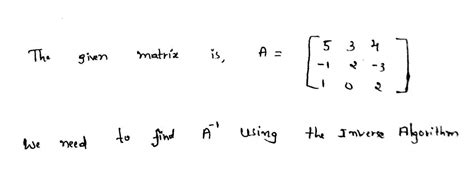 The given matrix is, A = [ 5 3 4
-1 2 -3
1 0 2 ]
We need to find A⁻¹ using the Inverse Algorithm